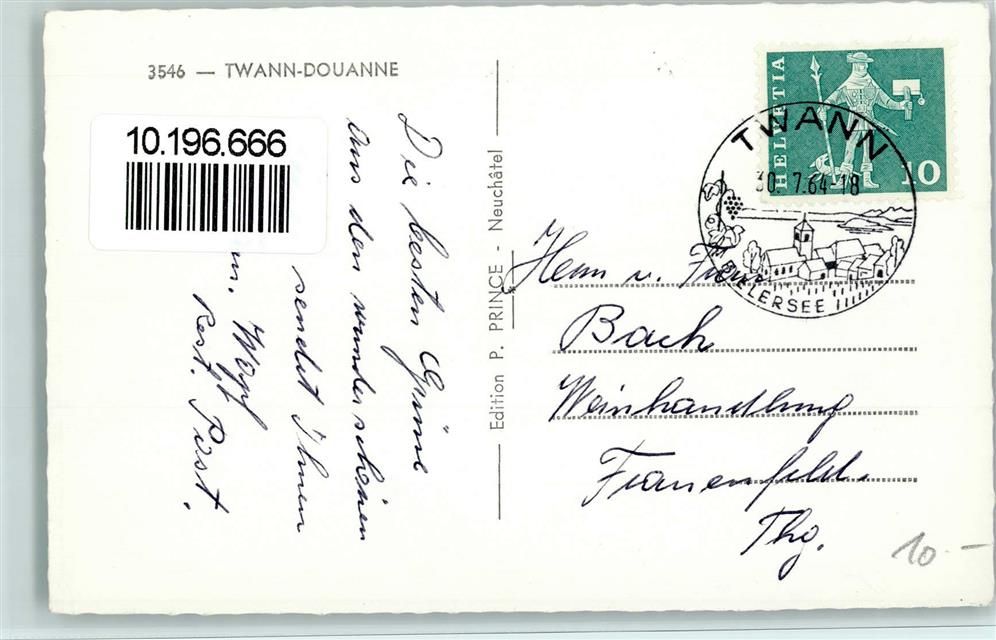 3546 — TWANN-DOUANNE
10.196.666
Die besten Grüsse
aus den wunderschönen
sendet Ihnen
m. Werpf
Rest. Post.
Edition P. PRINCE - Neuchâtel
HELVETIA
10
TWANN
30. 7.64-18
AM BIELERSEE
Herrn u. Frau
Bach
Weinhandlung
Frauenfeld.
Thg.
10 —